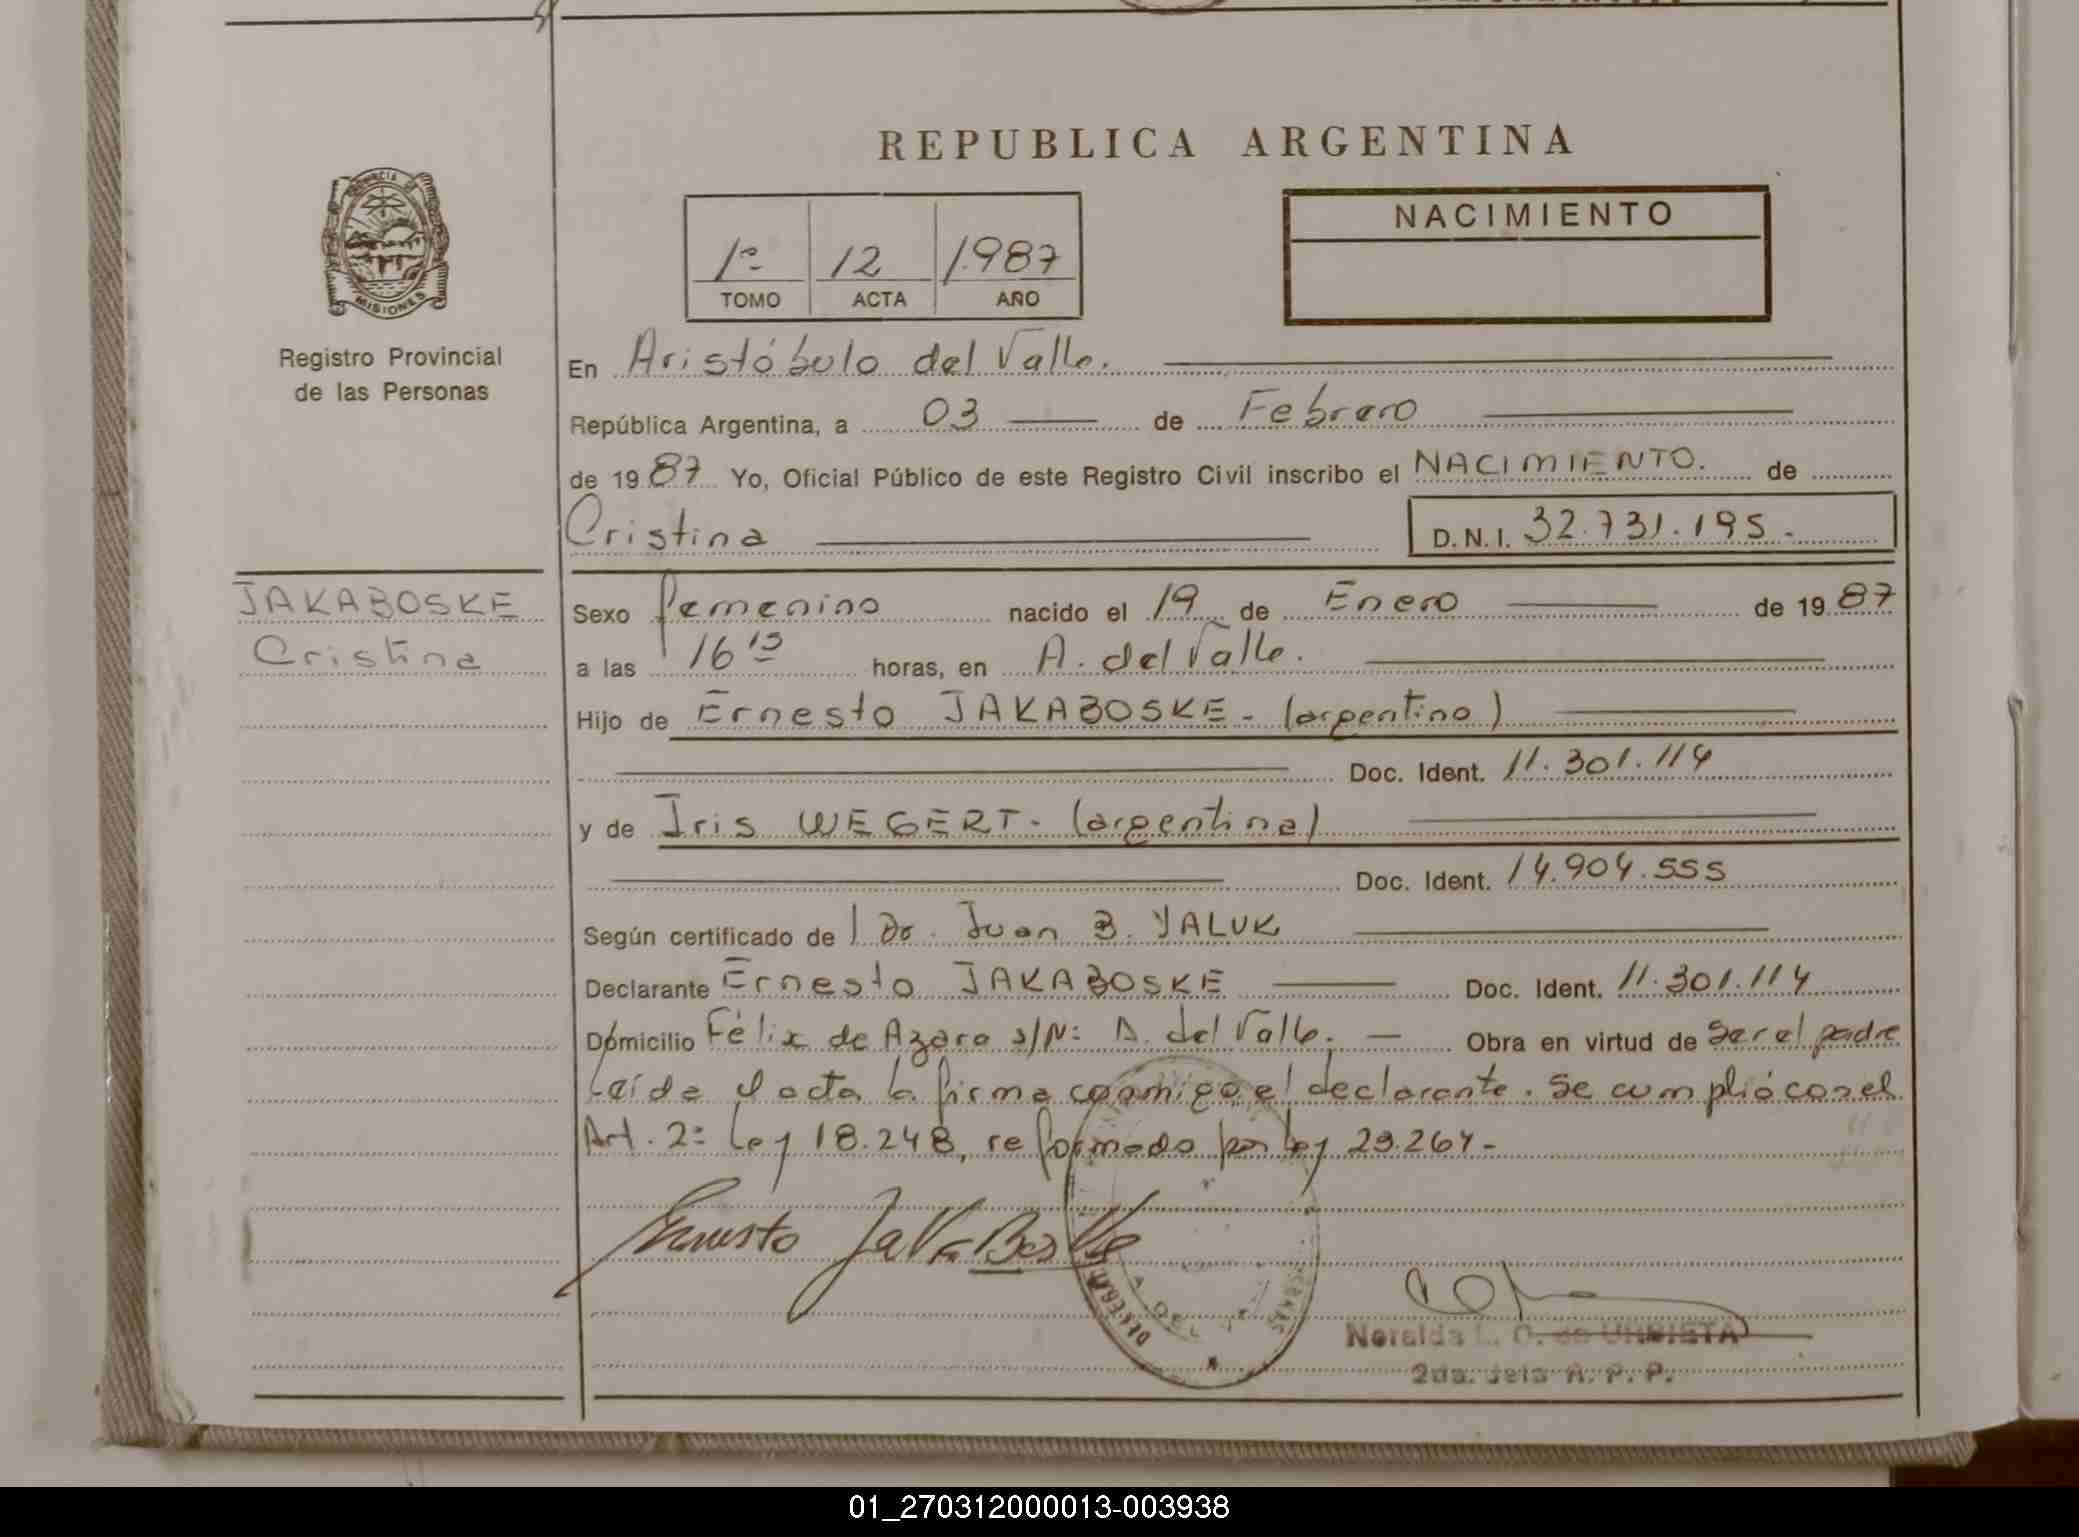 REPUBLICA ARGENTINA
PROVINCIA DE
MISIONES
Registro Provincial
de las Personas
1º 12 1.987
TOMO ACTA AÑO
NACIMIENTO
En Aristóbulo del Valle.
República Argentina, a 03 de Febrero
de 1987 Yo, Oficial Público de este Registro Civil inscribo el NACIMIENTO. de
Cristina D.N.I. 32.731.195.-
JAKABOSKE
Cristina
Sexo femenino nacido el 19 de Enero de 1987
a las 16 15 horas, en A. del Valle.
Hijo de Ernesto JAKABOSKE - (argentino)
Doc. Ident. 11.301.114
y de Iris WEGERT - (argentina)
Doc. Ident. 14.904.555
Según certificado de Dr. Juan B. YALUK
Declarante Ernesto JAKABOSKE Doc. Ident. 11.301.114
Domicilio Félix de Azara s/Nº A. del Valle. Obra en virtud de ser el padre
Leída el acta la firma conmigo el declarante. Se cumplió con el
Art. 2º Ley 18.248, reformado por Ley 23.264-
Ernesto JakaBoske
L. C. de URRIETA
2da. Jefa R. P. P.
01_270312000013-003938